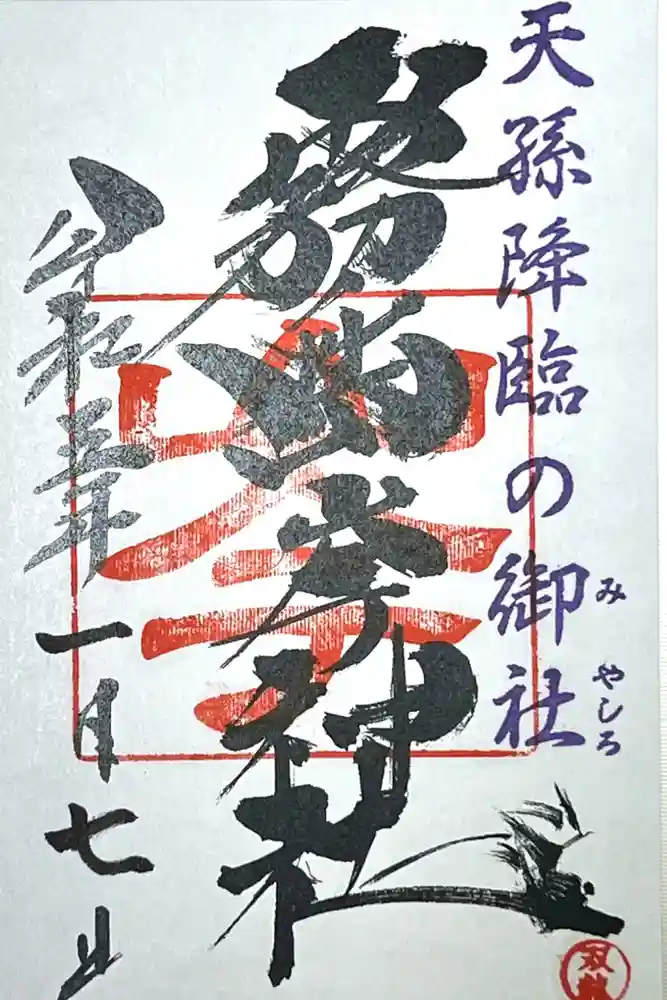 天孫降臨の御社
み やしろ
霧島岑神社
令和三年
一月七日
岑